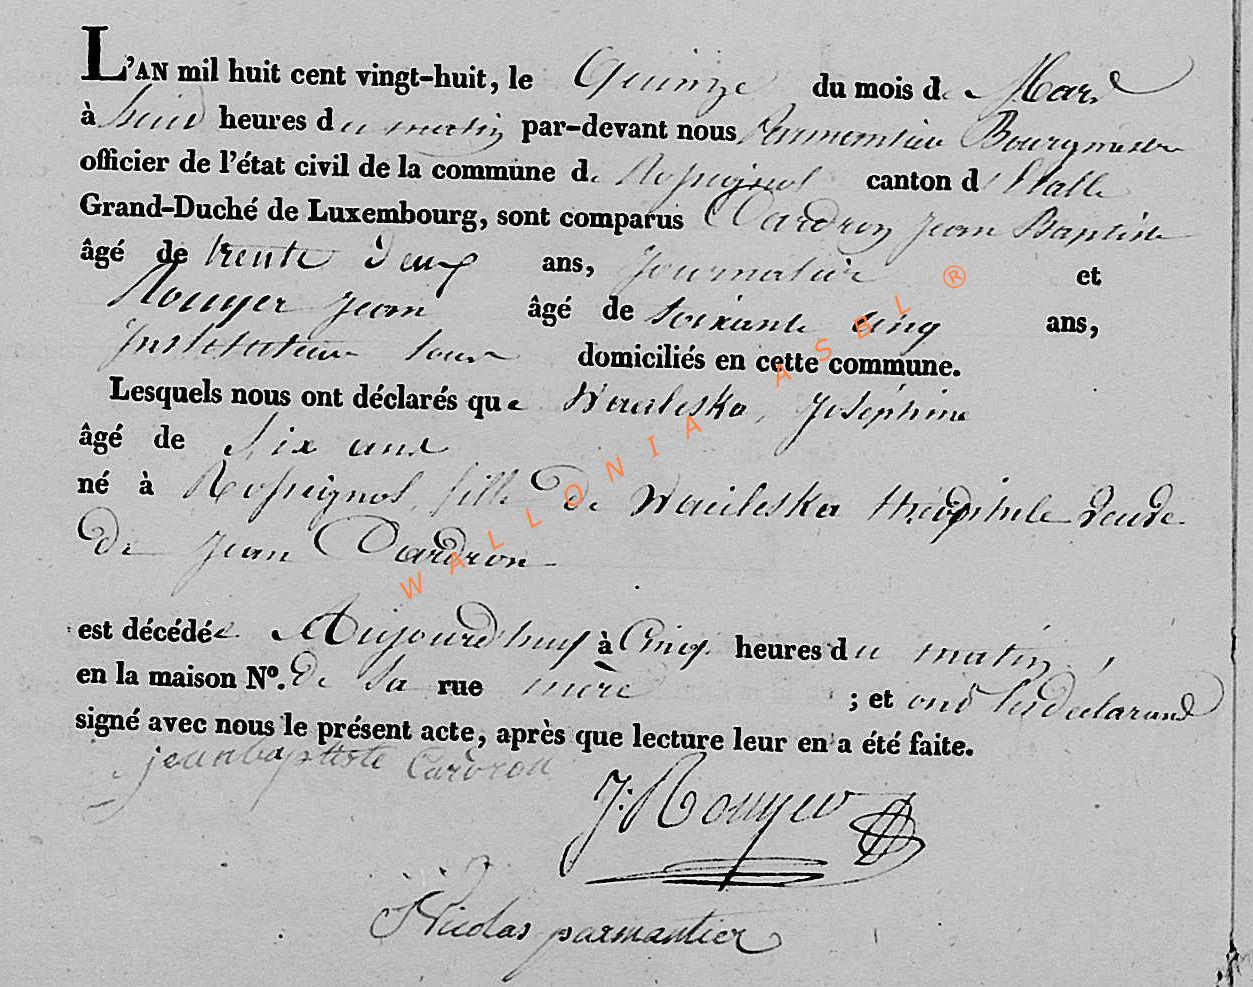 L'AN mil huit cent vingt-huit, le Quinze du mois de Mars
à huit heures du matin par-devant nous Parmentier Bourgmestre
officier de l'état civil de la commune de Rossignol canton d'Etalle
Grand-Duché de Luxembourg, sont comparus Dardron jean Baptiste
âgé de trente deux ans, journalier et
Rouyer jean âgé de soixante cinq ans,
instituteur tous domiciliés en cette commune.
Lesquels nous ont déclarés que Waileska, Joséphine
âgé de six ans
né à Rossignol, fille de Waileska théophile veuve
de jean Dardron
est décédée Aujourdhuy à Cinq heures du matin,
en la maison Nº. de sa rue mère ; et ont les declarans
signé avec nous le présent acte, après que lecture leur en a été faite.
jean baptiste Cardron
J: Rouyer
Nicolas parmentier
WALLONIA ASBL ®